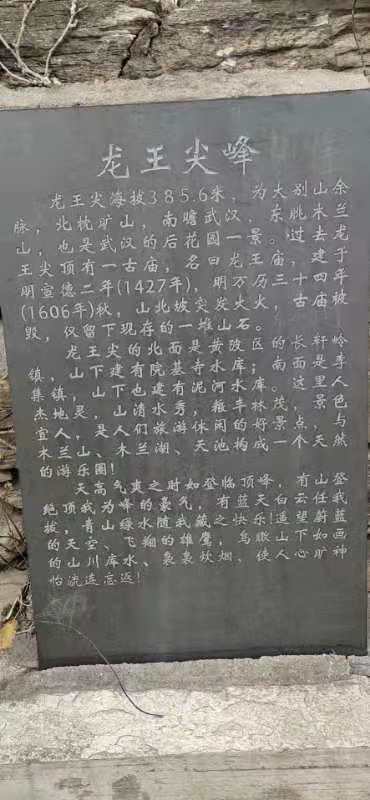 龙王尖峰
龙王尖海拔385.6米，为大别山余
脉，北枕矿山，南瞻武汉，东眺木兰
山，也是武汉的后花园一景。过去龙
王尖顶有一古庙，名曰龙王庙，建于
明宣德二年(1427年)，明万历三十四年
(1606年)秋，山北坡突发火火，古庙被
毁，仅留下现存的一堆山石。
龙王尖的北面是黄陂区的长轩岭
镇，山下建有院基寺水库；南面是李
集镇，山下也建有泥河水库。这里人
杰地灵，山清水秀，粮丰林茂，景色
宜人，是人们旅游休闲的好景点，与
木兰山、木兰湖、天池构成一个天然
的游乐圈！
天高气爽之时如登临顶峰，有山登
绝顶我为峰的豪气，有蓝天白云任我
披，青山绿水随我藏之快乐！遥望蔚蓝
的天空、飞翔的雄鹰，鸟瞰山下如画
的山川库水、袅袅炊烟、使人心旷神
怡流连忘返！